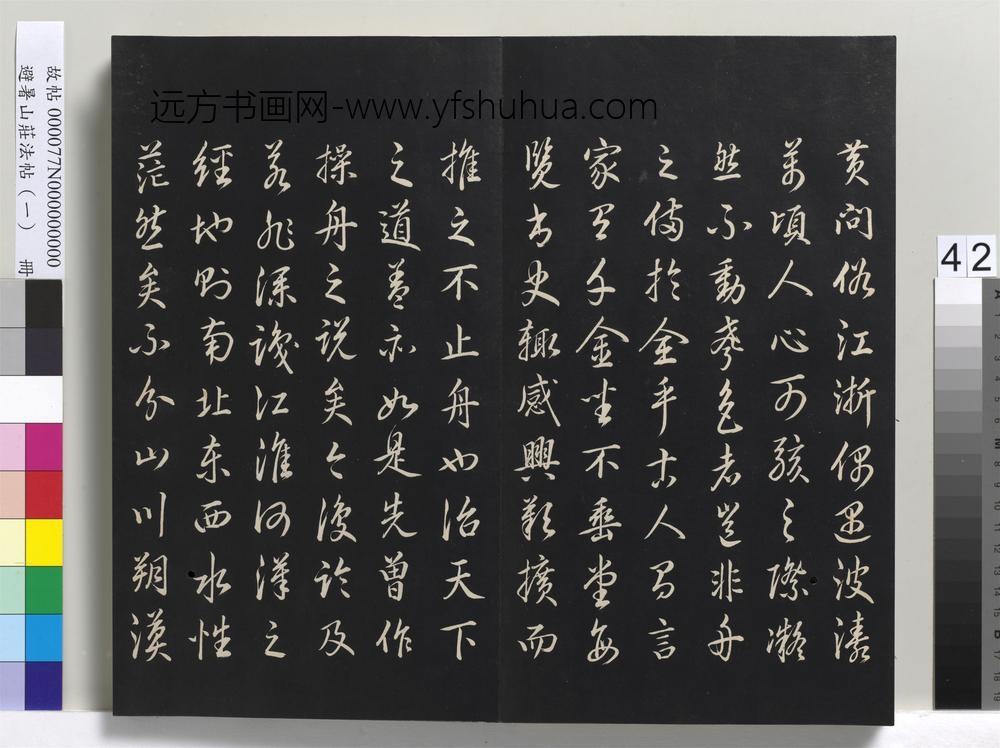 黄問俗江浙偶遇波濤
萬頃人心可駭之際凝
然不動聲色者豈非舟
之備於全乎古人有言
家有千金坐不垂堂每
覽書史輒感興歎擴而
推之不止舟也治天下
之道蓋亦如是先曾作
操舟之說矣今復論及
若非深識江淮河漢之
經地則南北东西水性
茫然矣不分山川朔漠
远方书画网-www.yfshuhua.com
故帖 000077N000000000
避暑山莊法帖（一） 冊
42